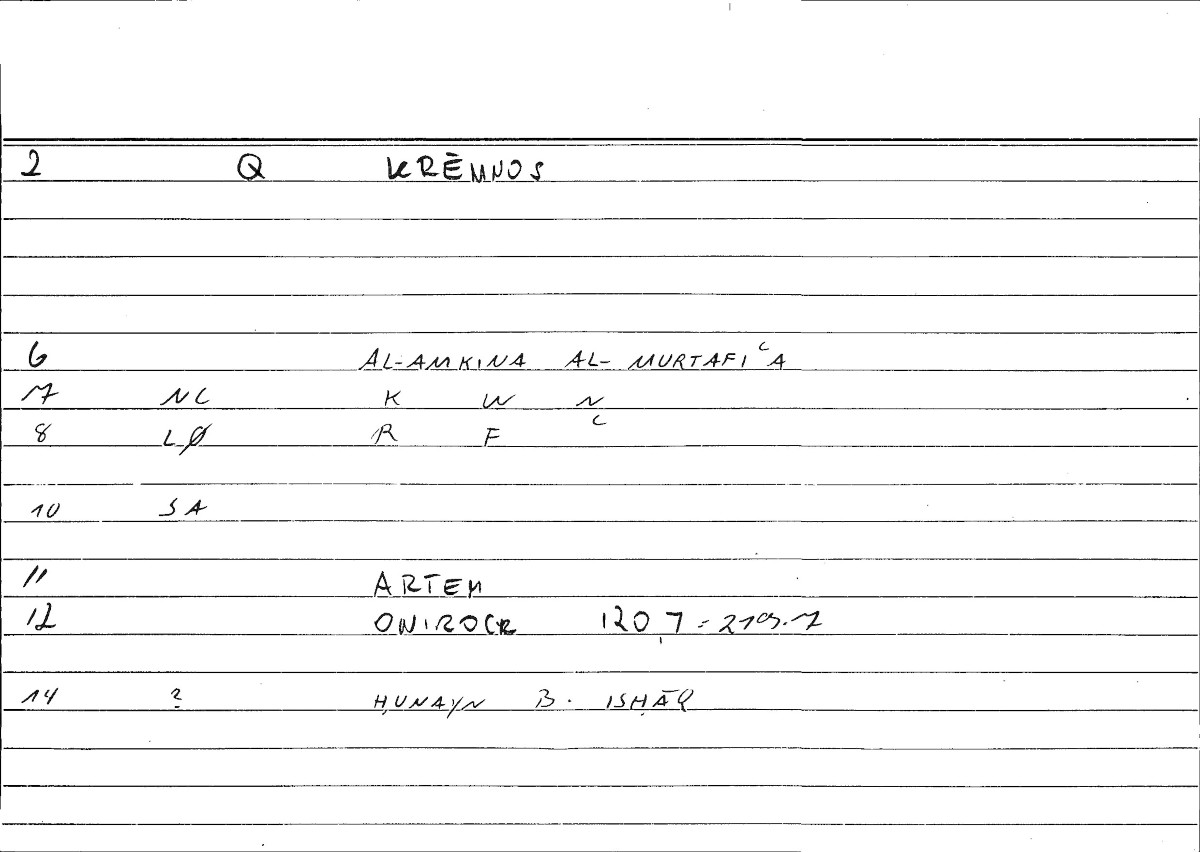 2 Q KRĒMNOS
6 AL-AMKINA AL-MURTAFIʿA
7 NC K W N
8 LØ R F ʿ
10 SA
11 ARTEM
12 ONIROCR 120,7 = 219.7
14 ? ḤUNAYN B. ISḤĀQ